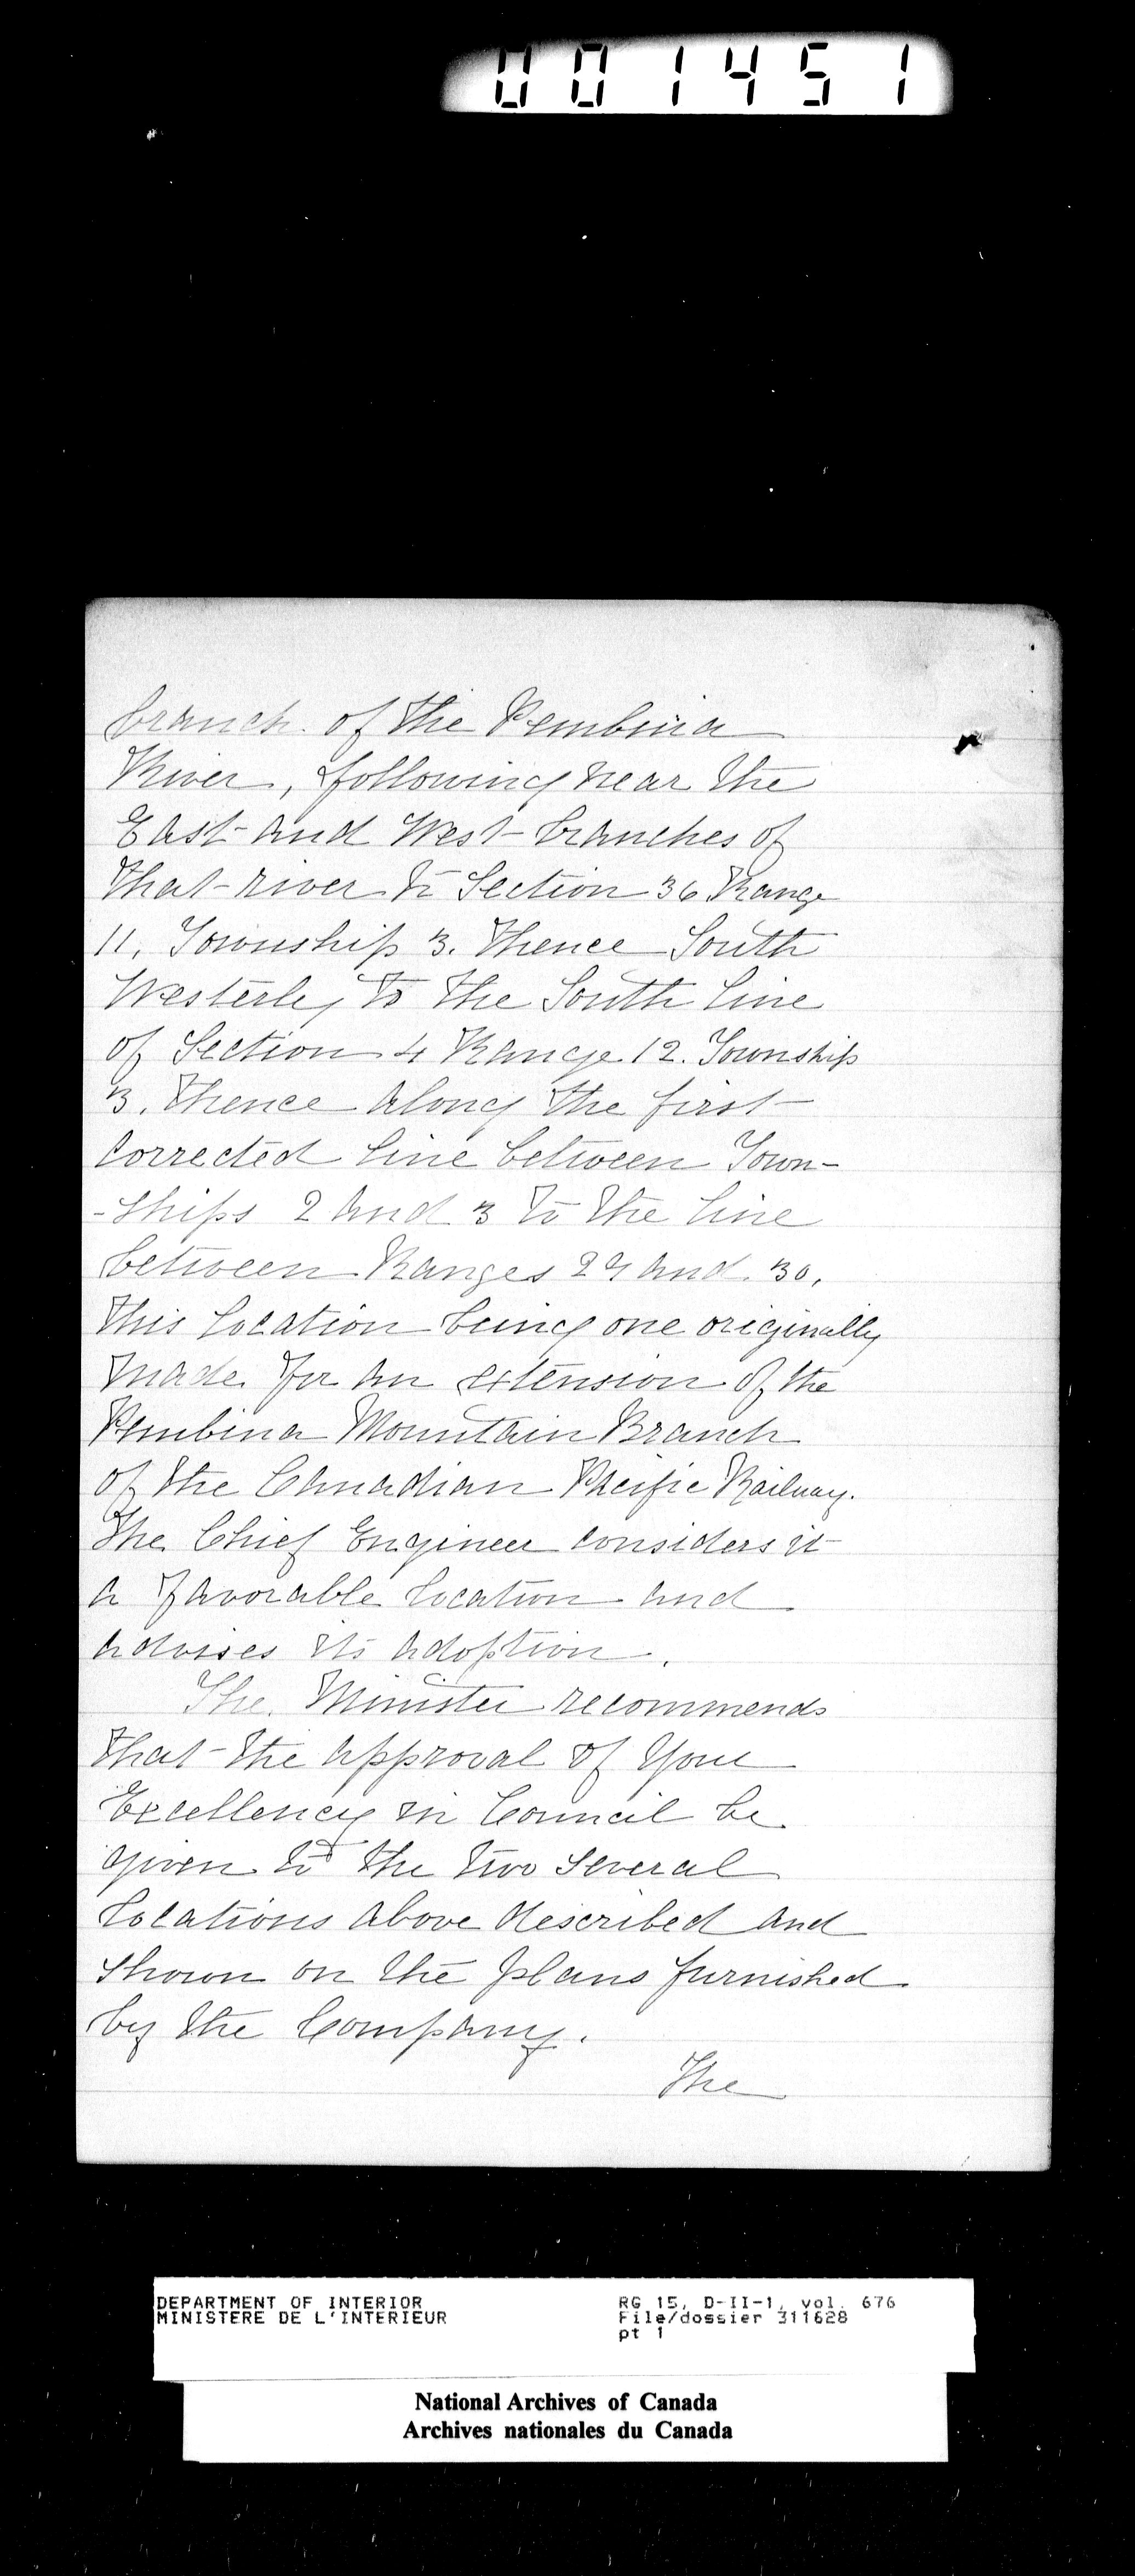 001451
branch of the Pembina
River, following near the
East and West branches of
that river to Section 36 Range
11, Township 3. Thence South
Westerly to the South line
of Section 4 Range 12. Township
3. Thence along the first
corrected line between Town-
-ships 2 and 3 to the line
between Ranges 29 and 30,
this location being one originally
made for an extension of the
Pembina Mountain Branch
of the Canadian Pacific Railway.
The Chief Engineer considers it
a favorable location and
advises its adoption.
The Minister recommends
that the approval of Your
Excellency in Council be
given to the two several
locations above described and
shown on the plans furnished
by the Company.
The
DEPARTMENT OF INTERIOR
MINISTERE DE L'INTERIEUR
RG 15, D-II-1, vol. 676
File/dossier 311628
pt 1
National Archives of Canada
Archives nationales du Canada